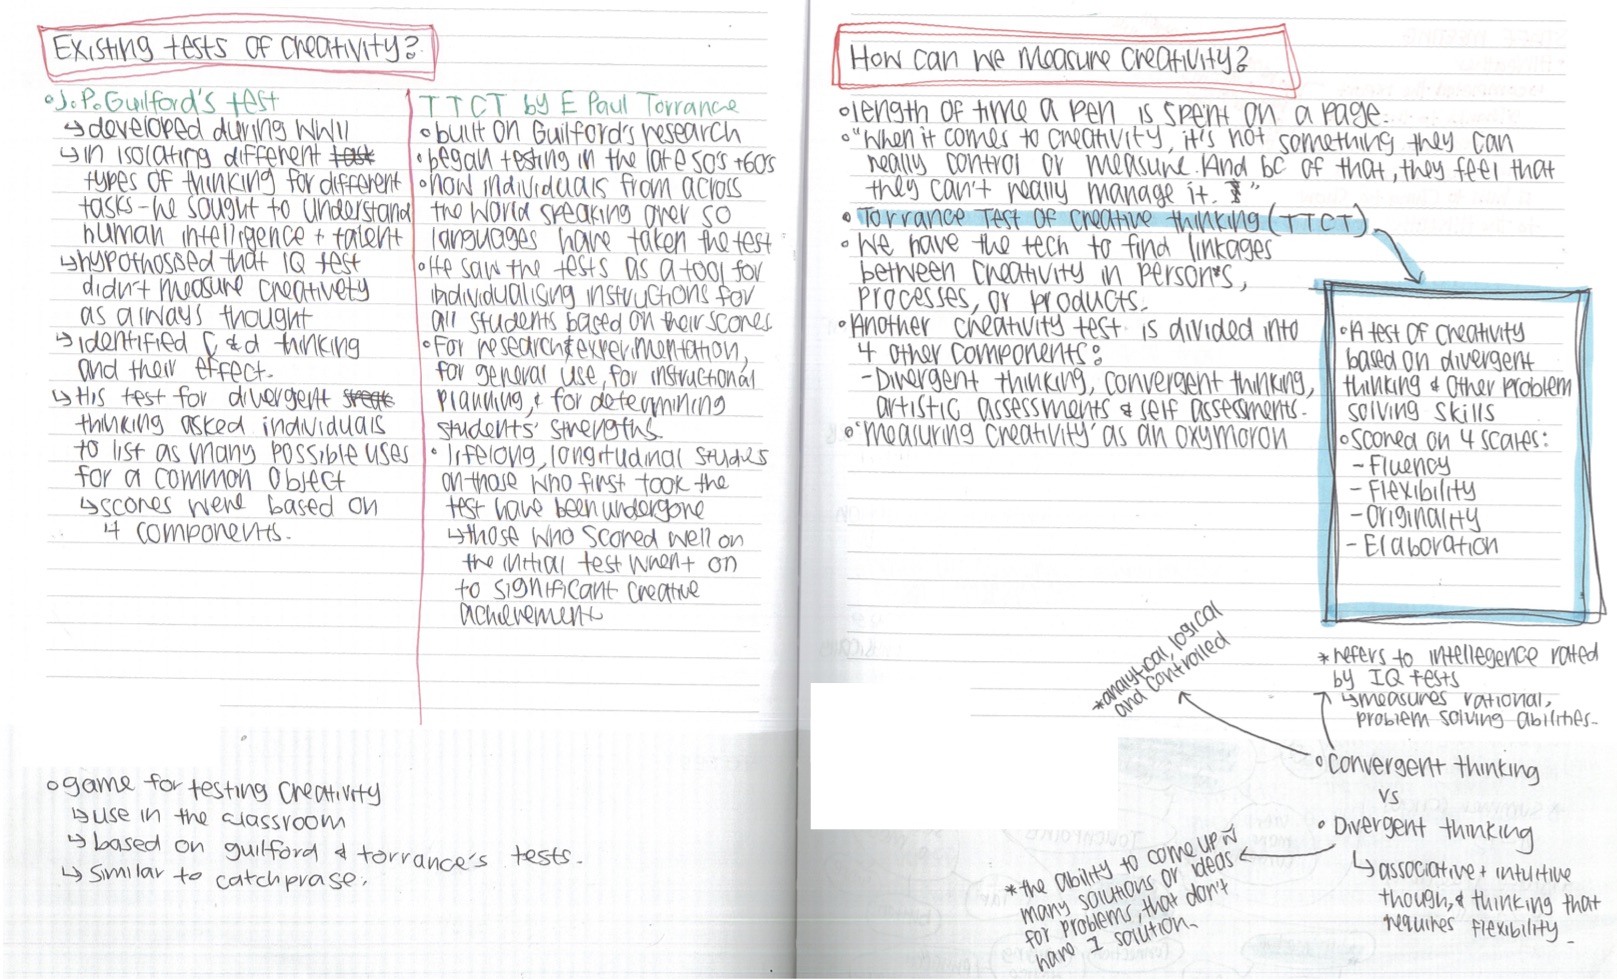 Existing tests of creativity?
J.P. Guilford's test
↳ developed during WWII
↳ in isolating different task
types of thinking for different
tasks - he sought to understand
human intelligence + talent
↳ hypothosised that IQ test
didn't measure creativety
as always thought
↳ identified C & d thinking
and their effect.
↳ His test for divergent
thinking asked individuals
to list as many possible uses
for a common object
↳ scores were based on
4 components.
TTCT by E Paul Torrance
• built on Guilford's research
• began testing in the late 50's + 60s
• now individuals from across
the world speaking over 50
languages have taken the test
• He saw the tests as a tool for
individualising instructions for
all students based on their scores
• For research & experimentation,
for general use, for instructional
planning, & for determining
students' strengths.
• lifelong, longitudinal studies
on those who first took the
test have been undergone
↳ those who scored well on
the initial test went on
to significant creative
achievement
• game for testing creativity
↳ use in the classroom
↳ based on guilford & torrance's tests.
↳ similar to catchprase.
How can we measure creativity?
• length of time a pen is spent on a page.
• "When it comes to creativity, it's not something they can
really control or measure. And bc of that, they feel that
they can't really manage it."
• Torrance Test of Creative thinking (TTCT)
• We have the tech to find linkages
between creativity in persons,
processes, or products.
• Another creativity test is divided into
4 other components:
- Divergent thinking, convergent thinking,
artistic assessments & self assessments.
• 'measuring creativity' as an oxymoron
• A test of creativity
based on divergent
thinking & other problem
solving skills
• Scored on 4 scales:
- Fluency
- Flexibility
- Originality
- Elaboration
* analytical, logical
and controlled
* refers to intellegence rated
by IQ tests
↳ measures rational,
problem solving abilities.
• Convergent thinking
vs
• Divergent thinking
↳ associative + intuitive
though, & thinking that
requires flexibility.
* the ability to come up w
many solutions or ideas
for problems, that don't
have 1 solution.